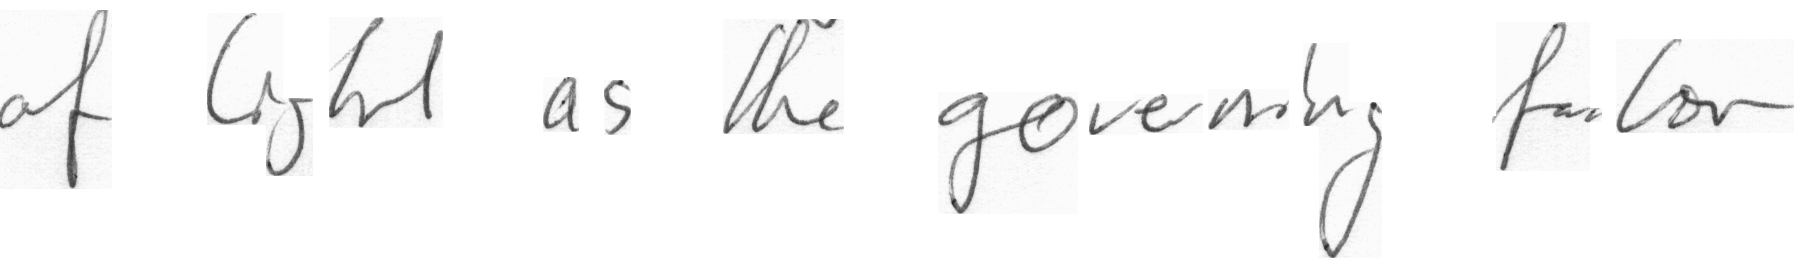 of light as the governing factor